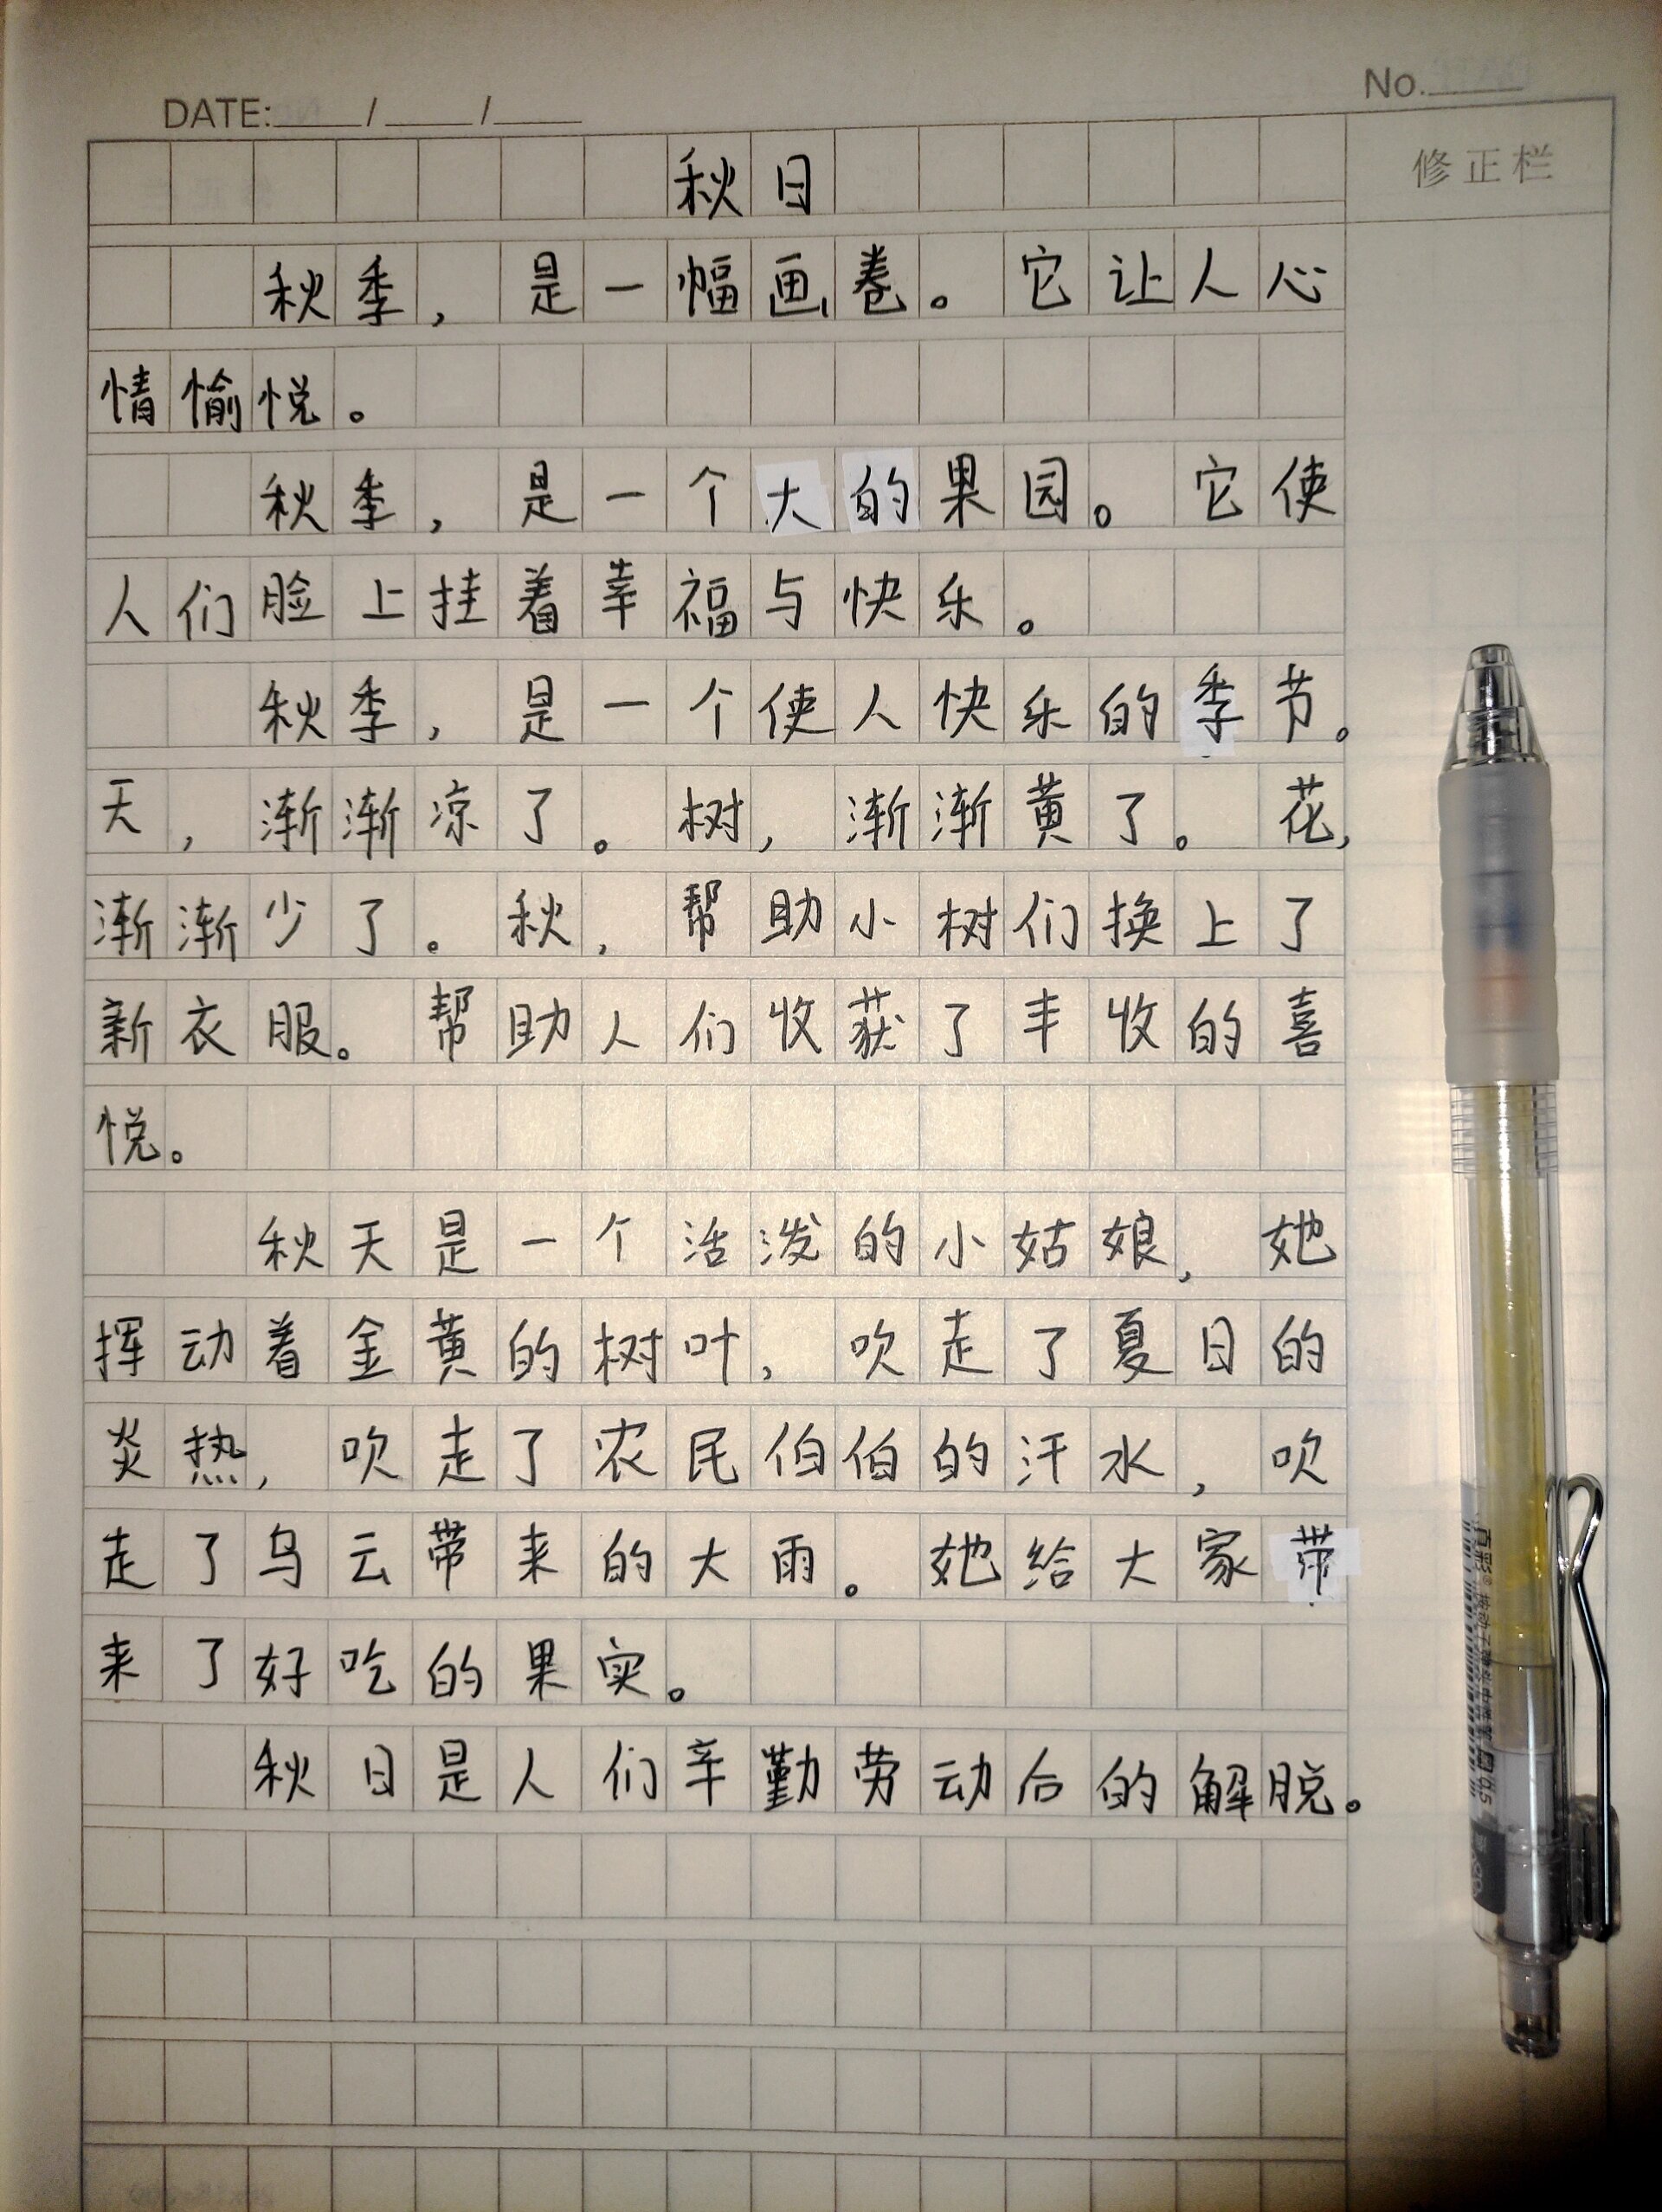 No.
DATE: / /
修正栏
秋日
秋季，是一幅画卷。它让人心
情愉悦。
秋季，是一个大的果园。它使
人们脸上挂着幸福与快乐。
秋季，是一个使人快乐的季节。
天，渐渐凉了。树，渐渐黄了。花，
渐渐少了。秋，帮助小树们换上了
新衣服。帮助人们收获了丰收的喜
悦。
秋天是一个活泼的小姑娘，她
挥动着金黄的树叶，吹走了夏日的
炎热，吹走了农民伯伯的汗水，吹
走了乌云带来的大雨。她给大家带
来了好吃的果实。
秋日是人们辛勤劳动后的解脱。